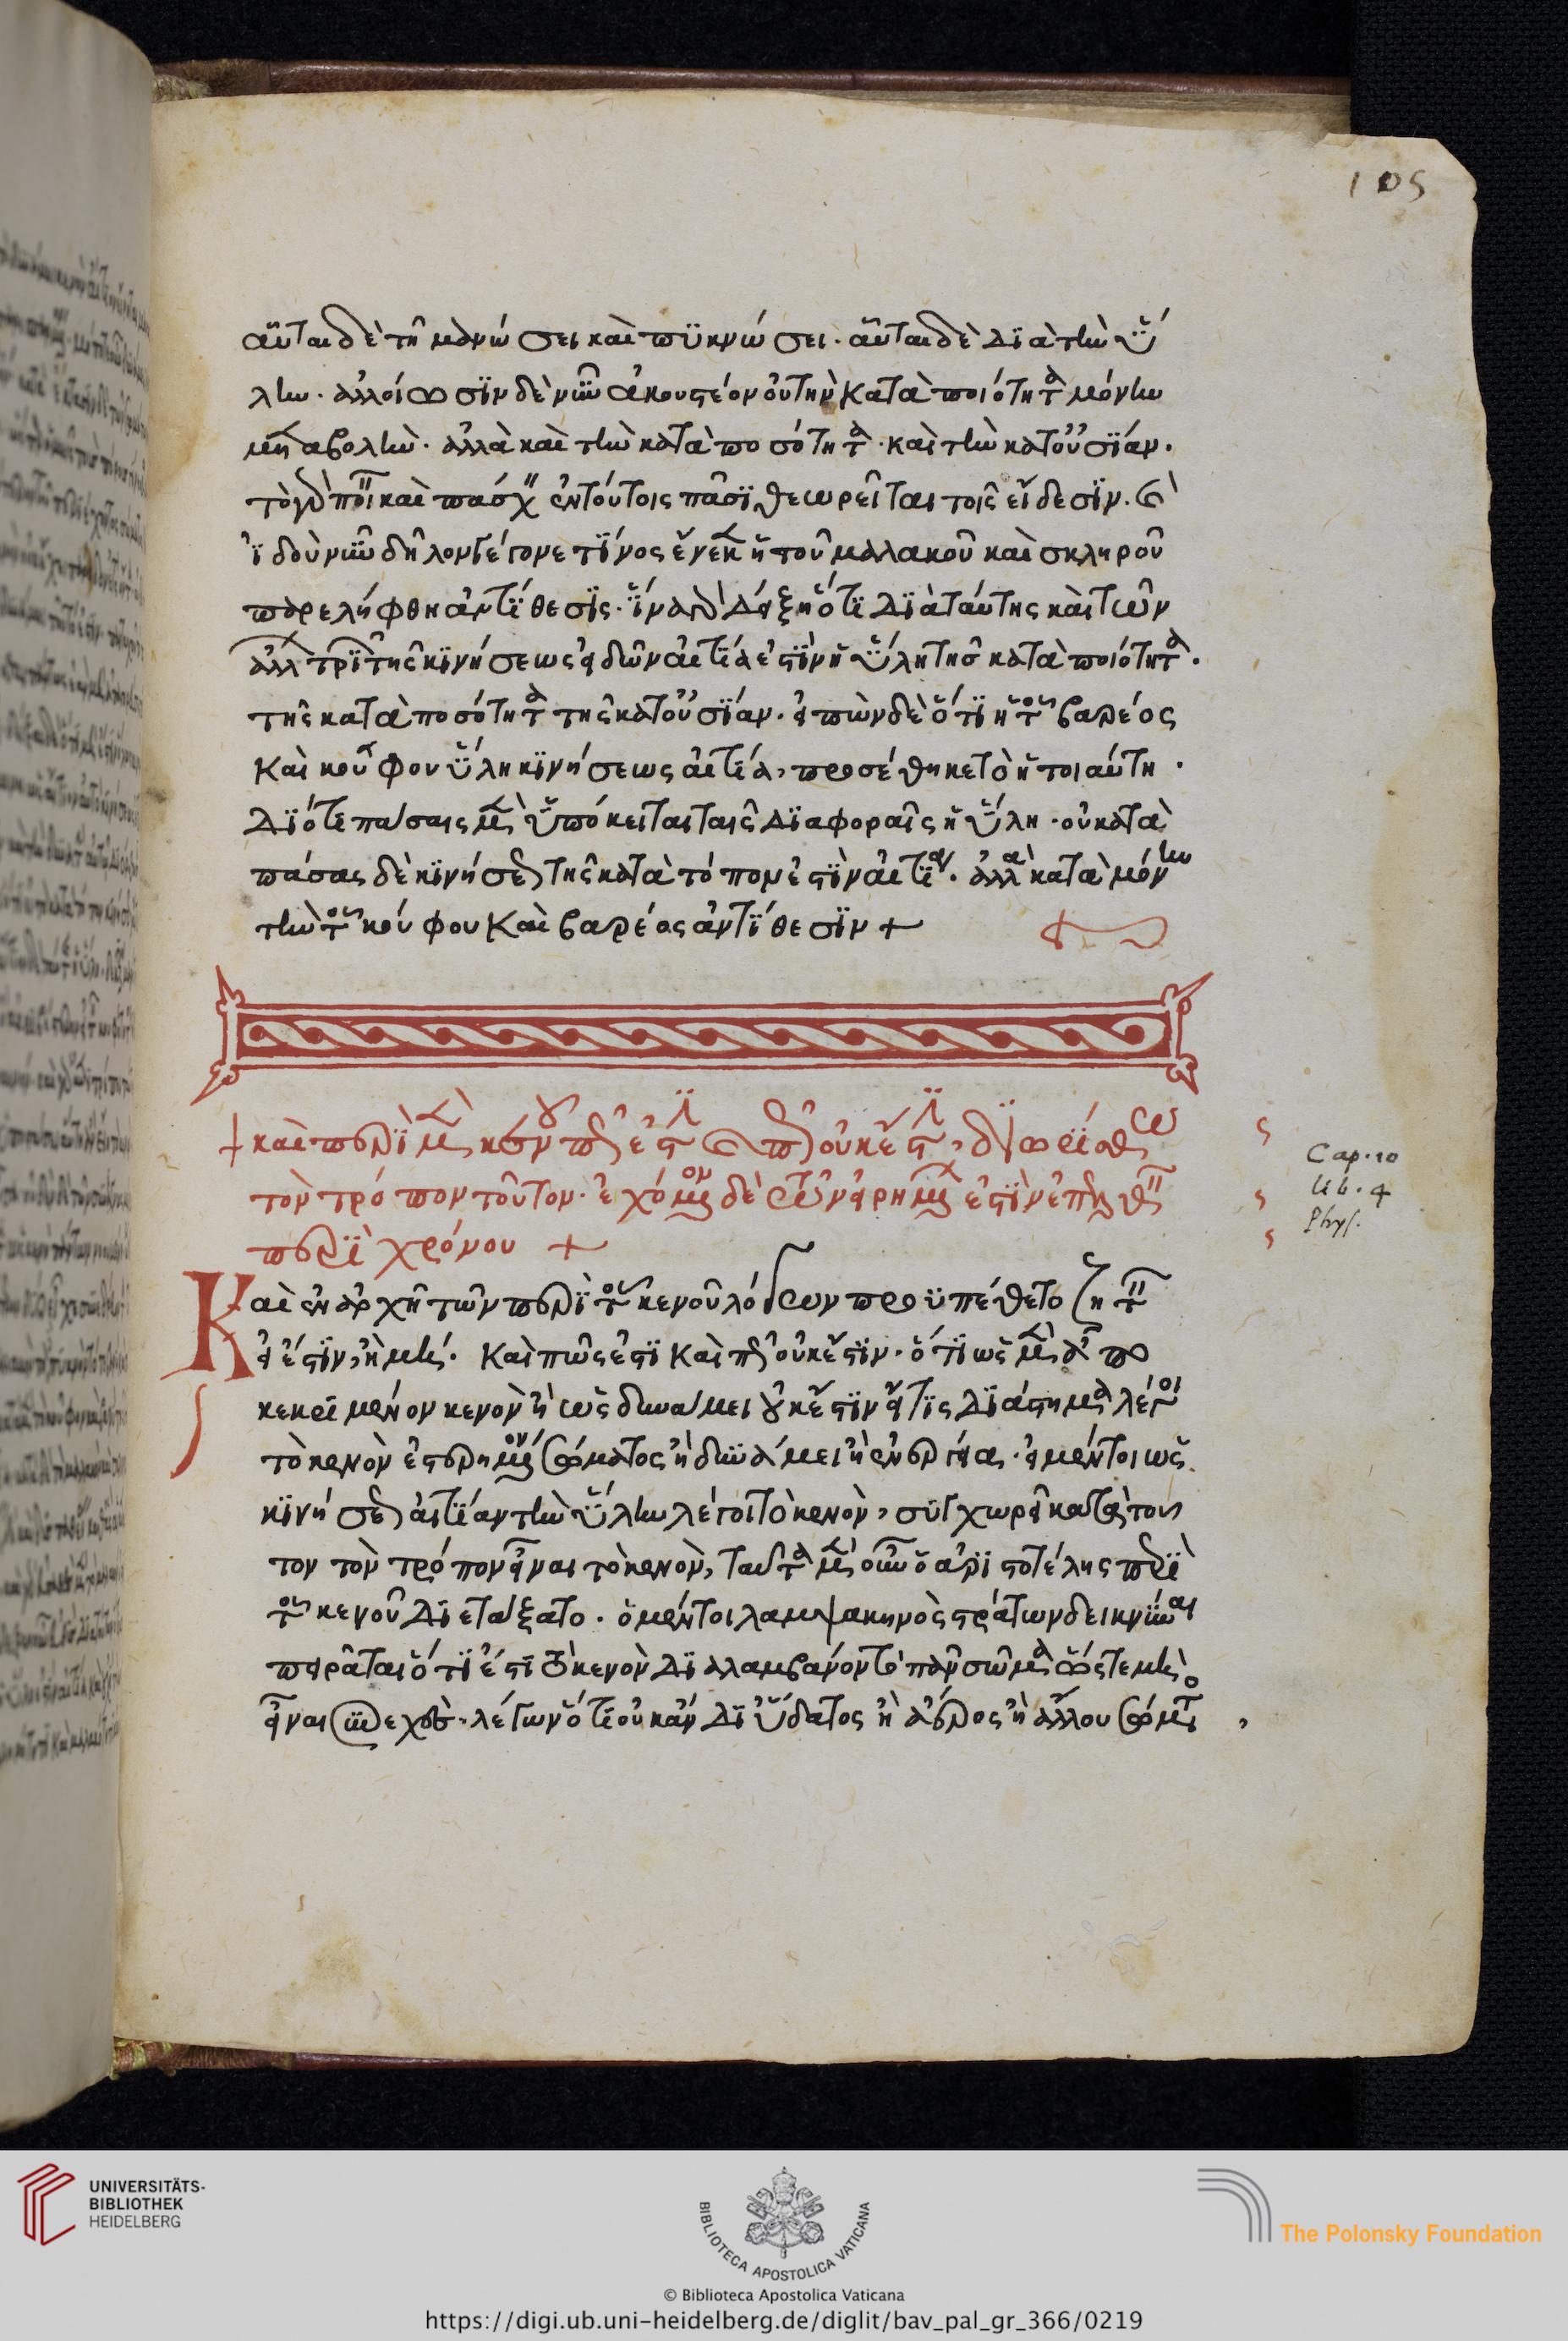 105
αὗται δὲ τῇ μανώσει καὶ πυκνώσει· αὗται δὲ διὰ τὴν ὕ
λην· ἀλλοίωσιν δὲ νῦν ἀκουστέον οὐ τὴν κατὰ ποιότητα μόνην
μεταβολήν· ἀλλὰ καὶ τὴν κατὰ ποσότητα· καὶ τὴν κατ' οὐσίαν·
τὸ γὰρ ποιεῖν καὶ πάσχειν ἐν τούτοις πᾶσι θεωρεῖται τοῖς εἴδεσιν· καὶ
ἰδοὺ νῦν δῆλον γέγονε τίνος ἕνεκεν ἡ τοῦ μαλακοῦ καὶ σκληροῦ
παρελήφθη ἀντίθεσις· ἵνα γὰρ δείξῃ ὅτι διὰ ταύτης καὶ τῶν
ἄλλων τριῶν τῆς κινήσεως εἰδῶν αἰτία ἐστὶν ἡ ὕλη τῆς κατὰ ποιότητα·
τῆς κατὰ ποσότητα τῆς κατ' οὐσίαν· εἰπὼν δὲ ὅτι ἡ τοῦ βαρέος
καὶ κούφου ὕλη κινήσεως αἰτία, προσέθηκε τὸ ἡ τοιαύτη·
διότι πάσαις μὲν ὑπόκειται ταῖς διαφοραῖς ἡ ὕλη· οὐ κατὰ
πάσας δὲ κινήσεως τῆς κατὰ τόπον ἐστὶν αἰτία· ἀλλὰ κατὰ μόνην
τὴν τοῦ κούφου καὶ βαρέος ἀντίθεσιν +
+ καὶ περὶ μὲν κενοῦ πῶς ἔστι καὶ πῶς οὐκ ἔστι, διωρίσθω
τὸν τρόπον τοῦτον· ἐχόμενον δὲ τῶν εἰρημένων ἐστὶν ἐπελθεῖν
περὶ χρόνου +
Cap. 10
lib. 4
Phys.
Καὶ ἐν ἀρχῇ τῶν περὶ τοῦ κενοῦ λόγων προϋπέθετο ζητεῖν
εἰ ἔστιν, ἢ μή· καὶ πῶς ἐστι καὶ πῶς οὐκ ἔστιν· ὅτι ὡς μὲν ἀπο
κεκριμένον κενὸν ἢ ὡς δυνάμει οὐκ ἔστιν εἴ τις διάστημα λέγοι
τὸ κενὸν ἐστερημένον σώματος ἢ δυνάμει ἢ ἐνεργείᾳ· εἰ μέντοι ὡς
κινήσεως αἰτίαν τὴν ὕλην λέγοι τὸ κενὸν, συγχωρεῖ κατὰ τοῦ
τον τὸν τρόπον εἶναι τὸ κενὸν, ταῦτα μὲν οὖν ὁ ἀριστοτέλης περὶ
τοῦ κενοῦ διετάξατο· ὁ μέντοι λαμψακηνὸς στράτων δεικνύναι
πειρᾶται ὅτι ἔστι τὸ κενὸν διαλαμβάνον τὸ πᾶν σῶμα ὥστε μὴ
εἶναι συνεχὲς· λέγων ὅτι οὐκ ἂν δι' ὕδατος ἢ ἀέρος ἢ ἄλλου σώματος
UNIVERSITÄTS-
BIBLIOTHEK
HEIDELBERG
BIBLIOTECA APOSTOLICA VATICANA
The Polonsky Foundation
© Biblioteca Apostolica Vaticana
https://digi.ub.uni-heidelberg.de/diglit/bav_pal_gr_366/0219